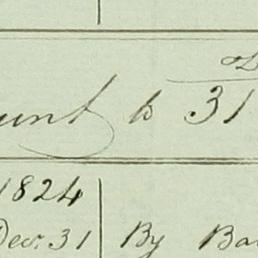 unt to 31
1824
Dec. 31 By Ba